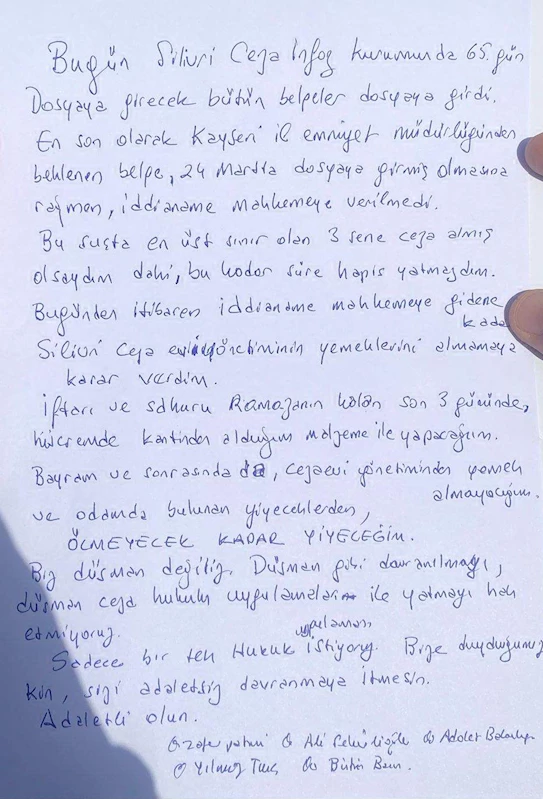 Bugün Silivri Ceza İnfaz kurumunda 65. gün
Dosyaya girecek bütün belgeler dosyaya girdi.
En son olarak Kayseri il emniyet müdürlüğünden
beklenen belge, 24 Martta dosyaya girmiş olmasına
rağmen, iddianame mahkemeye verilmedi.
Bu suçta en üst sınır olan 3 sene ceza almış
olsaydım dahi, bu kadar süre hapis yatmazdım.
Bugünden itibaren iddianame mahkemeye gidene
kadar
Silivri ceza evi yönetiminin yemeklerini almamaya
karar verdim.
İftarı ve sahuru Ramazanın kalan son 3 gününde,
hücremde kantinden aldığım malzeme ile yapacağım.
Bayram ve sonrasında da, cezaevi yönetiminden yemek
almayacağım.
ve odamda bulunan yiyeceklerden,
ÖLMEYECEK KADAR YİYECEĞİM.
Biz düşman değiliz. Düşman gibi davranılmayı,
düşman ceza hukuku uygulamaları ile yatmayı hak
etmiyoruz.
uygulaması
Sadece bir tek Hukuk istiyoruz. Bize duyduğunuz
kin, sizi adaletsiz davranmaya itmesin.
Adaletli olun.
Zafer partisi Ali Adalet Bakanlığı
Yılmaz Tunç Bütün Basın.